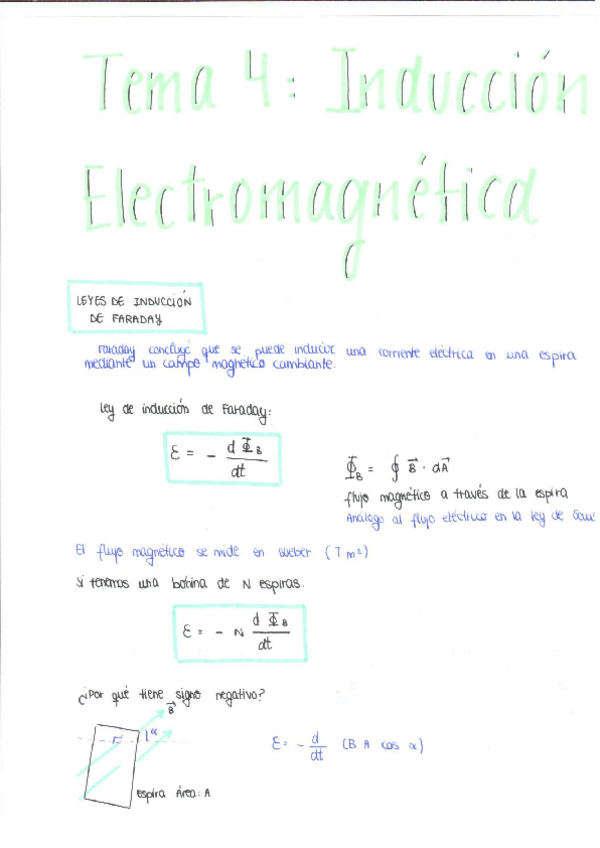 Tema 4: Inducción
Electromagnética
LEYES DE INDUCCIÓN
DE FARADAY
Faraday concluyó que se puede inducir una corriente eléctrica en una espira
mediante un campo magnético cambiante.
Ley de inducción de Faraday:
ε = - dΦ_B/dt
Φ_B = ∮ B⃗ · dA⃗
flujo magnético a través de la espira
Análogo al flujo eléctrico en la ley de Gaus
El flujo magnético se mide en weber (T m²)
Si tenemos una bobina de N espiras.
ε = - N dΦ_B/dt
¿Por qué tiene signo negativo?
B⃗
α
ε = - d/dt (B A cos α)
espira Área: A